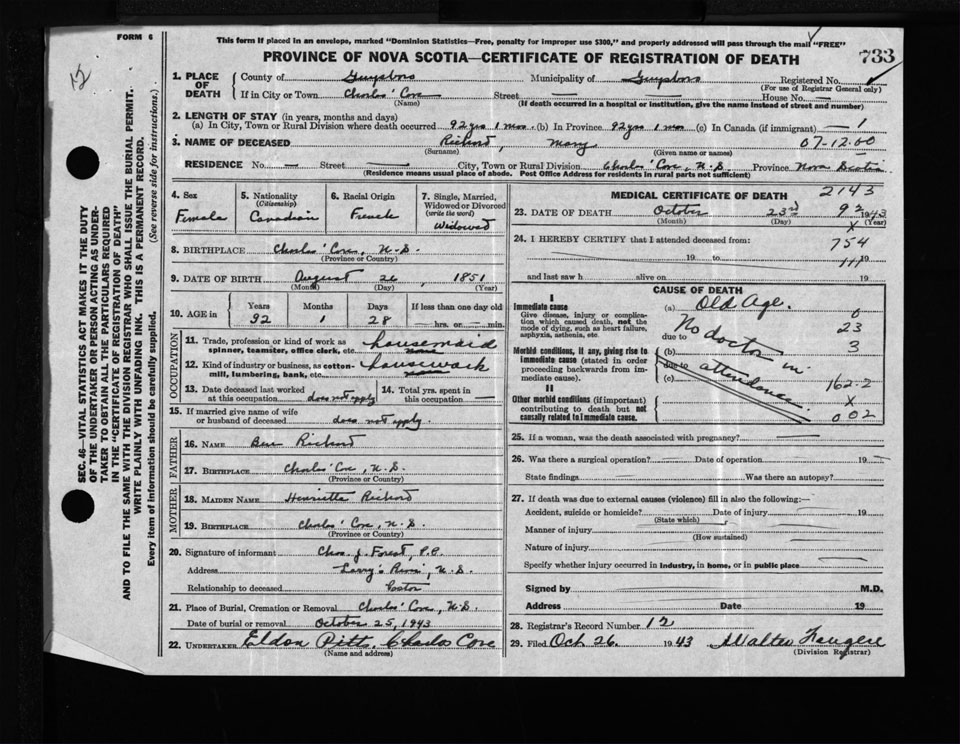 FORM 6
This form if placed in an envelope, marked "Dominion Statistics—Free, penalty for improper use $300," and properly addressed will pass through the mail "FREE"
PROVINCE OF NOVA SCOTIA—CERTIFICATE OF REGISTRATION OF DEATH
733
12
SEC. 46—VITAL STATISTICS ACT MAKES IT THE DUTY
OF THE UNDERTAKER OR PERSON ACTING AS UNDER-
TAKER TO OBTAIN ALL THE PARTICULARS REQUIRED
IN THE "CERTIFICATE OF REGISTRATION OF DEATH"
AND TO FILE THE SAME WITH THE DIVISION REGISTRAR WHO SHALL ISSUE THE BURIAL PERMIT.
WRITE PLAINLY WITH UNFADING INK. THIS IS A PERMANENT RECORD.
Every item of information should be carefully supplied. (See reverse side for instructions.)
1. PLACE OF DEATH
County of Guysboro Municipality of Guysboro Registered No.
(For use of Registrar General only)
If in City or Town Charlos' Cove Street — House No. —
(Name) (If death occurred in a hospital or institution, give the name instead of street and number)
2. LENGTH OF STAY (in years, months and days)
(a) In City, Town or Rural Division where death occurred 92 yrs 1 mon (b) In Province 92 yrs 1 mon (c) In Canada (if immigrant) — 1
3. NAME OF DECEASED Richard, Mary 07-12.00
(Surname) (Given name or names)
RESIDENCE No. — Street — City, Town or Rural Division Charlos' Cove N.S. Province Nova Scotia
(Residence means usual place of abode. Post Office Address for residents in rural parts not sufficient)
4. Sex Female
5. Nationality (Citizenship) Canadian
6. Racial Origin French
7. Single, Married, Widowed or Divorced (write the word) Widowed
8. BIRTHPLACE Charlos' Cove, N.S.
(Province or Country)
9. DATE OF BIRTH August 26, 1851
(Month) (Day) (Year)
10. AGE in
Years 92
Months 1
Days 28
If less than one day old
— hrs. or — min.
OCCUPATION
11. Trade, profession or kind of work as spinner, teamster, office clerk, etc. housemaid
12. Kind of industry or business, as cotton-mill, lumbering, bank, etc. housework
13. Date deceased last worked at this occupation does not apply
14. Total yrs. spent in this occupation —
15. If married give name of wife or husband of deceased does not apply.
FATHER
16. NAME Ben Richard
17. BIRTHPLACE Charlos' Cove, N.S.
(Province or Country)
MOTHER
18. MAIDEN NAME Henrietta Richard
19. BIRTHPLACE Charlos' Cove, N.S.
(Province or Country)
20. Signature of informant Chas. J. Forest, P.P.
Address Larry's River, N.S.
Relationship to deceased Pastor
21. Place of Burial, Cremation or Removal Charlos' Cove, N.S.
Date of burial or removal October 25, 1943
22. UNDERTAKER Eldon Pitts, Charlos Cove
(Name and address)
MEDICAL CERTIFICATE OF DEATH
2143
23. DATE OF DEATH October 23rd 1943
92
(Month) (Day) (Year)
X
24. I HEREBY CERTIFY that I attended deceased from: 754
19 to 19
111
and last saw h alive on 19
CAUSE OF DEATH
I
Immediate cause
Give disease, injury or complication which caused death, not the mode of dying, such as heart failure, asphyxia, asthenia, etc.
(a) Old Age. 0
23
due to No doctor in attendance. 3
Morbid conditions, if any, giving rise to immediate cause (stated in order proceeding backwards from immediate cause).
(b)
due to
(c)
162-2
II
Other morbid conditions (if important) contributing to death but not causally related to immediate cause.
X
0 02
25. If a woman, was the death associated with pregnancy? —
26. Was there a surgical operation? — Date of operation 19 —
State findings Was there an autopsy?
27. If death was due to external causes (violence) fill in also the following:—
Accident, suicide or homicide? Date of injury 19
(State which)
Manner of injury
(How sustained)
Nature of injury
Specify whether injury occurred in industry, in home, or in public place
Signed by M.D.
Address Date 19
28. Registrar's Record Number 12
29. Filed Oct. 26. 1943 Walter Faugere
(Division Registrar)